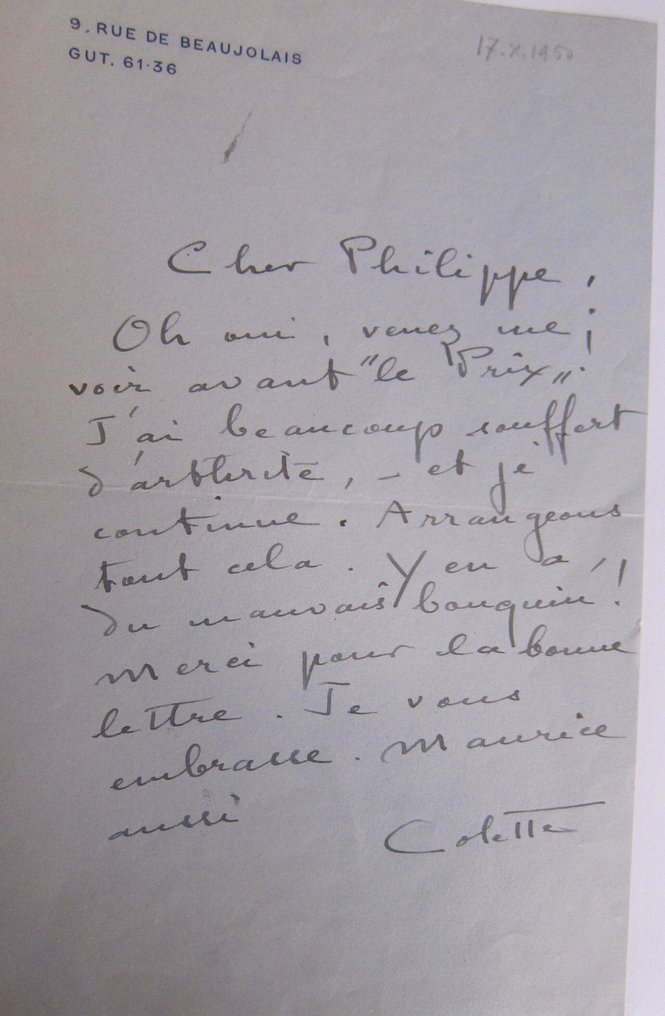 9, RUE DE BEAUJOLAIS
GUT. 61-36
17.X.1950
Cher Philippe,
Oh oui, venez me
voir avant "le Prix".
J'ai beaucoup souffert
d'arthrite, - et je
continue. Arrangeons
tout cela. Y en a,
du mauvais bouquin!
Merci pour la bonne
lettre. Je vous
embrasse. Maurice
aussi
Colette